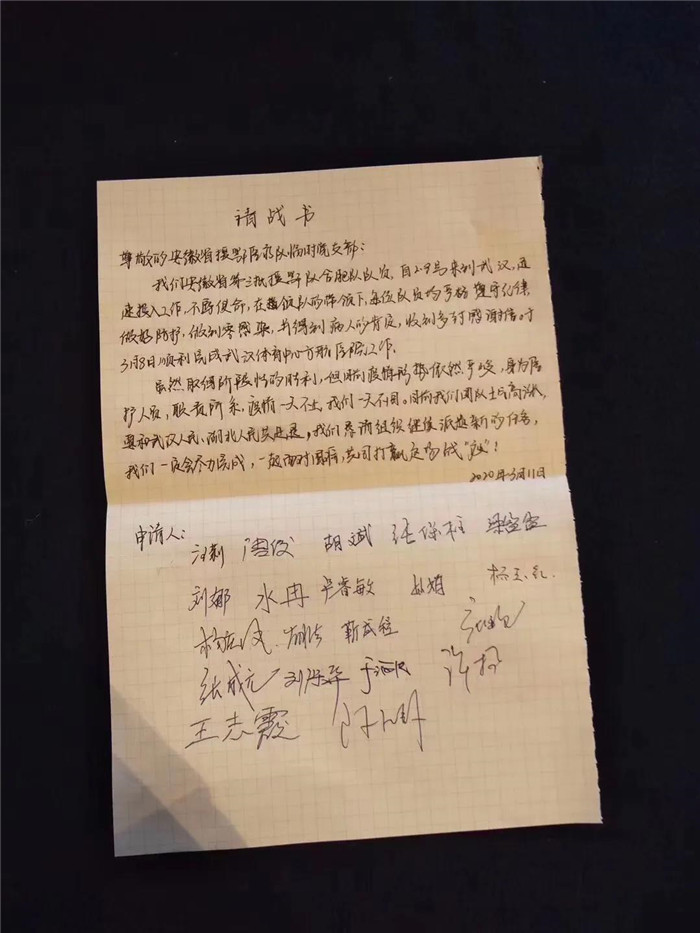 请战书
尊敬的安徽省援鄂医疗队临时党支部：
我们安徽省第三批援鄂队合肥队队员，自2.9号来到武汉，迅
速投入工作，不辱使命，在领队的带领下，每位队员均严格遵守纪律，
做好防护，做到零感染，并得到病人的肯定，收到多封感谢信。于
3月8日顺利完成武汉体育中心方舱医院工作。
虽然取得阶段性的胜利，但目前疫情形势依然严峻，身为医
护人员，职责所系，疫情一天不止，我们一天不回。目前我们团队士气高涨，
要和武汉人民、湖北人民共进退，我们恳请组织继续派遣新的任务，
我们一定会尽力完成，一起面对困难，共同打赢这场战“疫”！
2020年3月11日
申请人：
胡斌 张保柱
刘郁 水冉 卓睿敏
靳
张成元 刘 华 许
王志霞